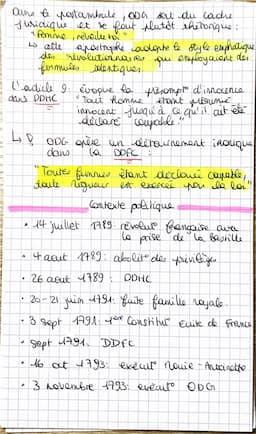 Dans le postambule, ODG sort du cadre
juridique et se fait plutôt rhétorique :
"Femme, réveille-toi"
↳ cette apostrophe adopte le style emphatique
des révolutionnaires qui employaient des
formules identiques.
L'article 9 évoque la présompt° d'innocence
dans DDHC "Tout homme étant présumé
innocent jusqu'à ce qu'il ait été
déclaré coupable."
↳ ODG opère un détournement ironique
dans la DDFC :
"Toute femme étant déclarée coupable,
toute rigueur est exercée par la loi"
Contexte politique
• 14 juillet 1789 : révolut° française avec
la prise de la Bastille
• 4 aout 1789 : abolit° des privilèges
• 26 aout 1789 : DDHC
• 20-21 juin 1791 : fuite famille royale
• 3 sept 1791 : 1ère Constitut° écrite de France
• sept 1791 : DDFC
• 16 oct 1793 : exécut° Marie-Antoinette
• 3 novembre 1793 : exécut° ODG